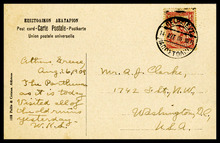 ΕΠΙΣΤΟΛΙΚΟΝ ΔΕΛΤΑΡΙΟΝ
Post card—Carte Postale—Postkarte
Union postale universelle
Athens, Greece
Aug. 26, 1908
The Parthenon
as it is today
Visited all of
the old ruins
yesterday.
Mr. A. J. Clarke,
1742 S St. N.W.
Washington, D.C.
U.S.A.